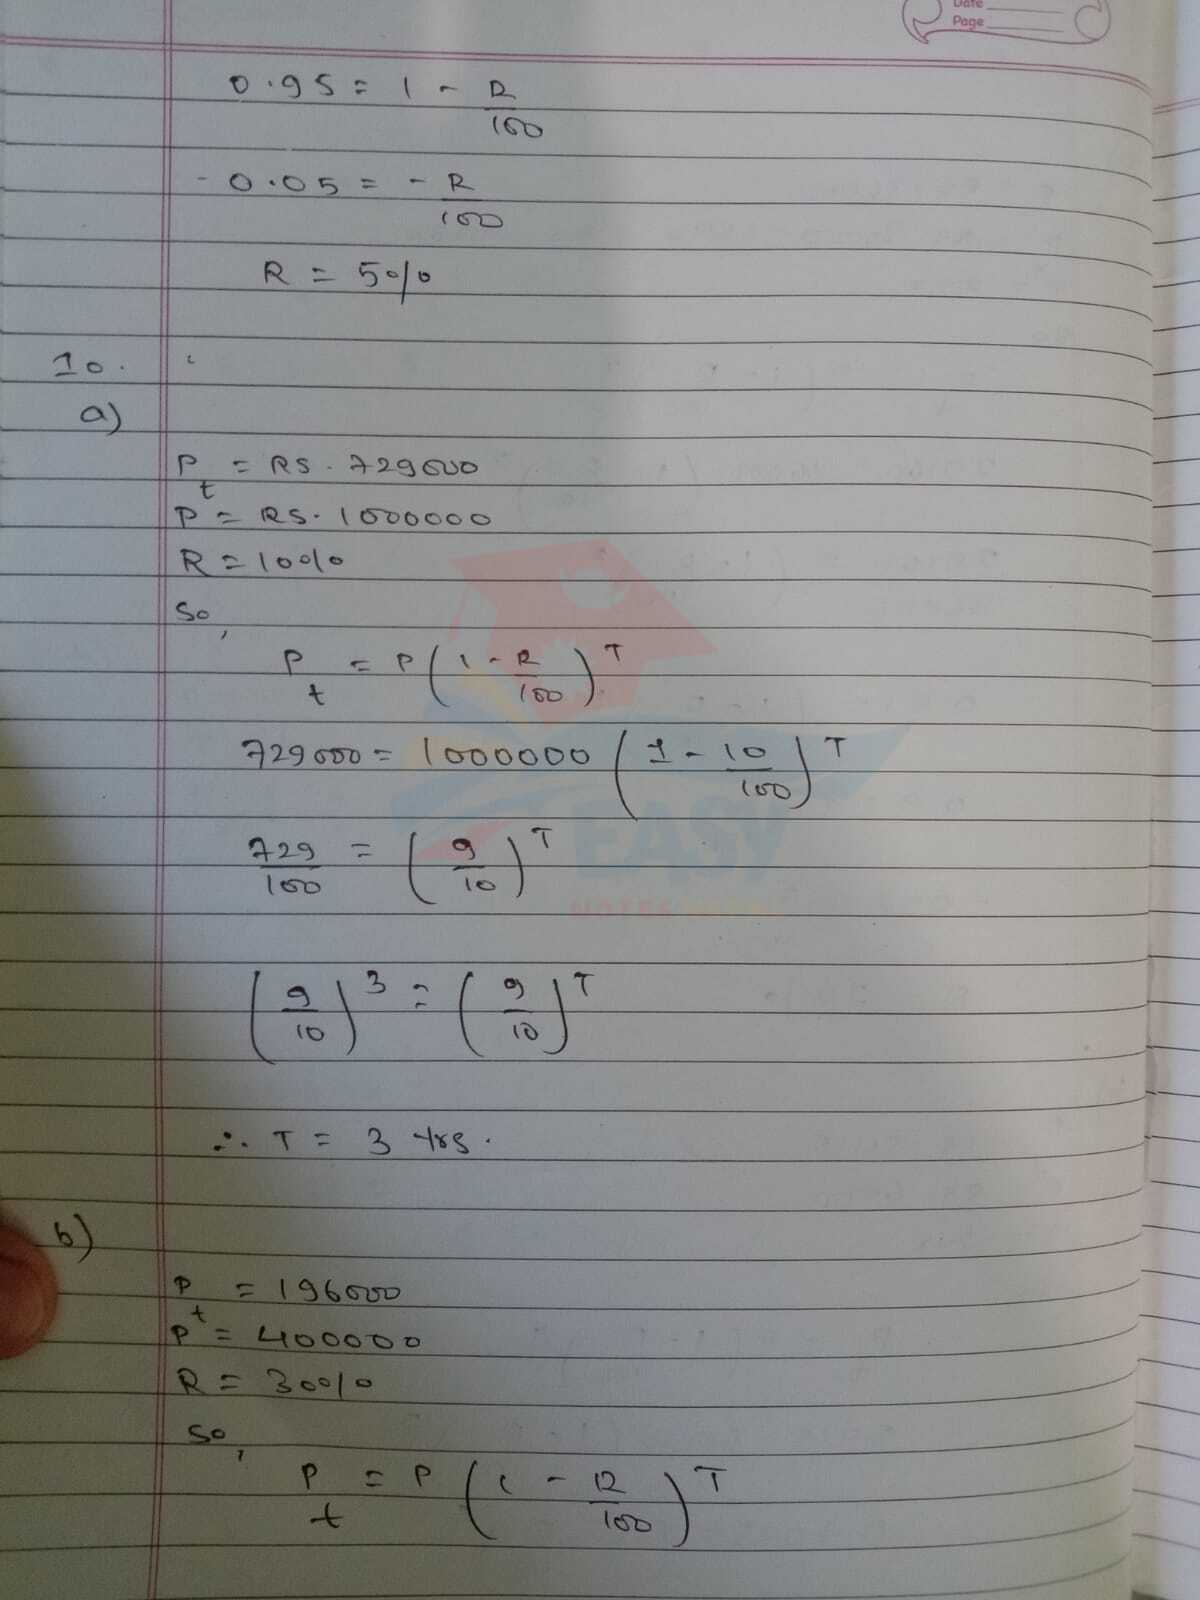 Date
Page
0.95 = 1 - R/100
- 0.05 = - R/100
R = 5%
10.
a)
Pt = RS. 729000
P = RS. 1000000
R = 10%
So,
Pt = P(1 - R/100)^T
729000 = 1000000(1 - 10/100)^T
729/100 = (9/10)^T
(9/10)^3 = (9/10)^T
∴ T = 3 Yrs.
b)
Pt = 196000
P = 400000
R = 30%
So,
Pt = P(1 - R/100)^T
EASY
NOTES